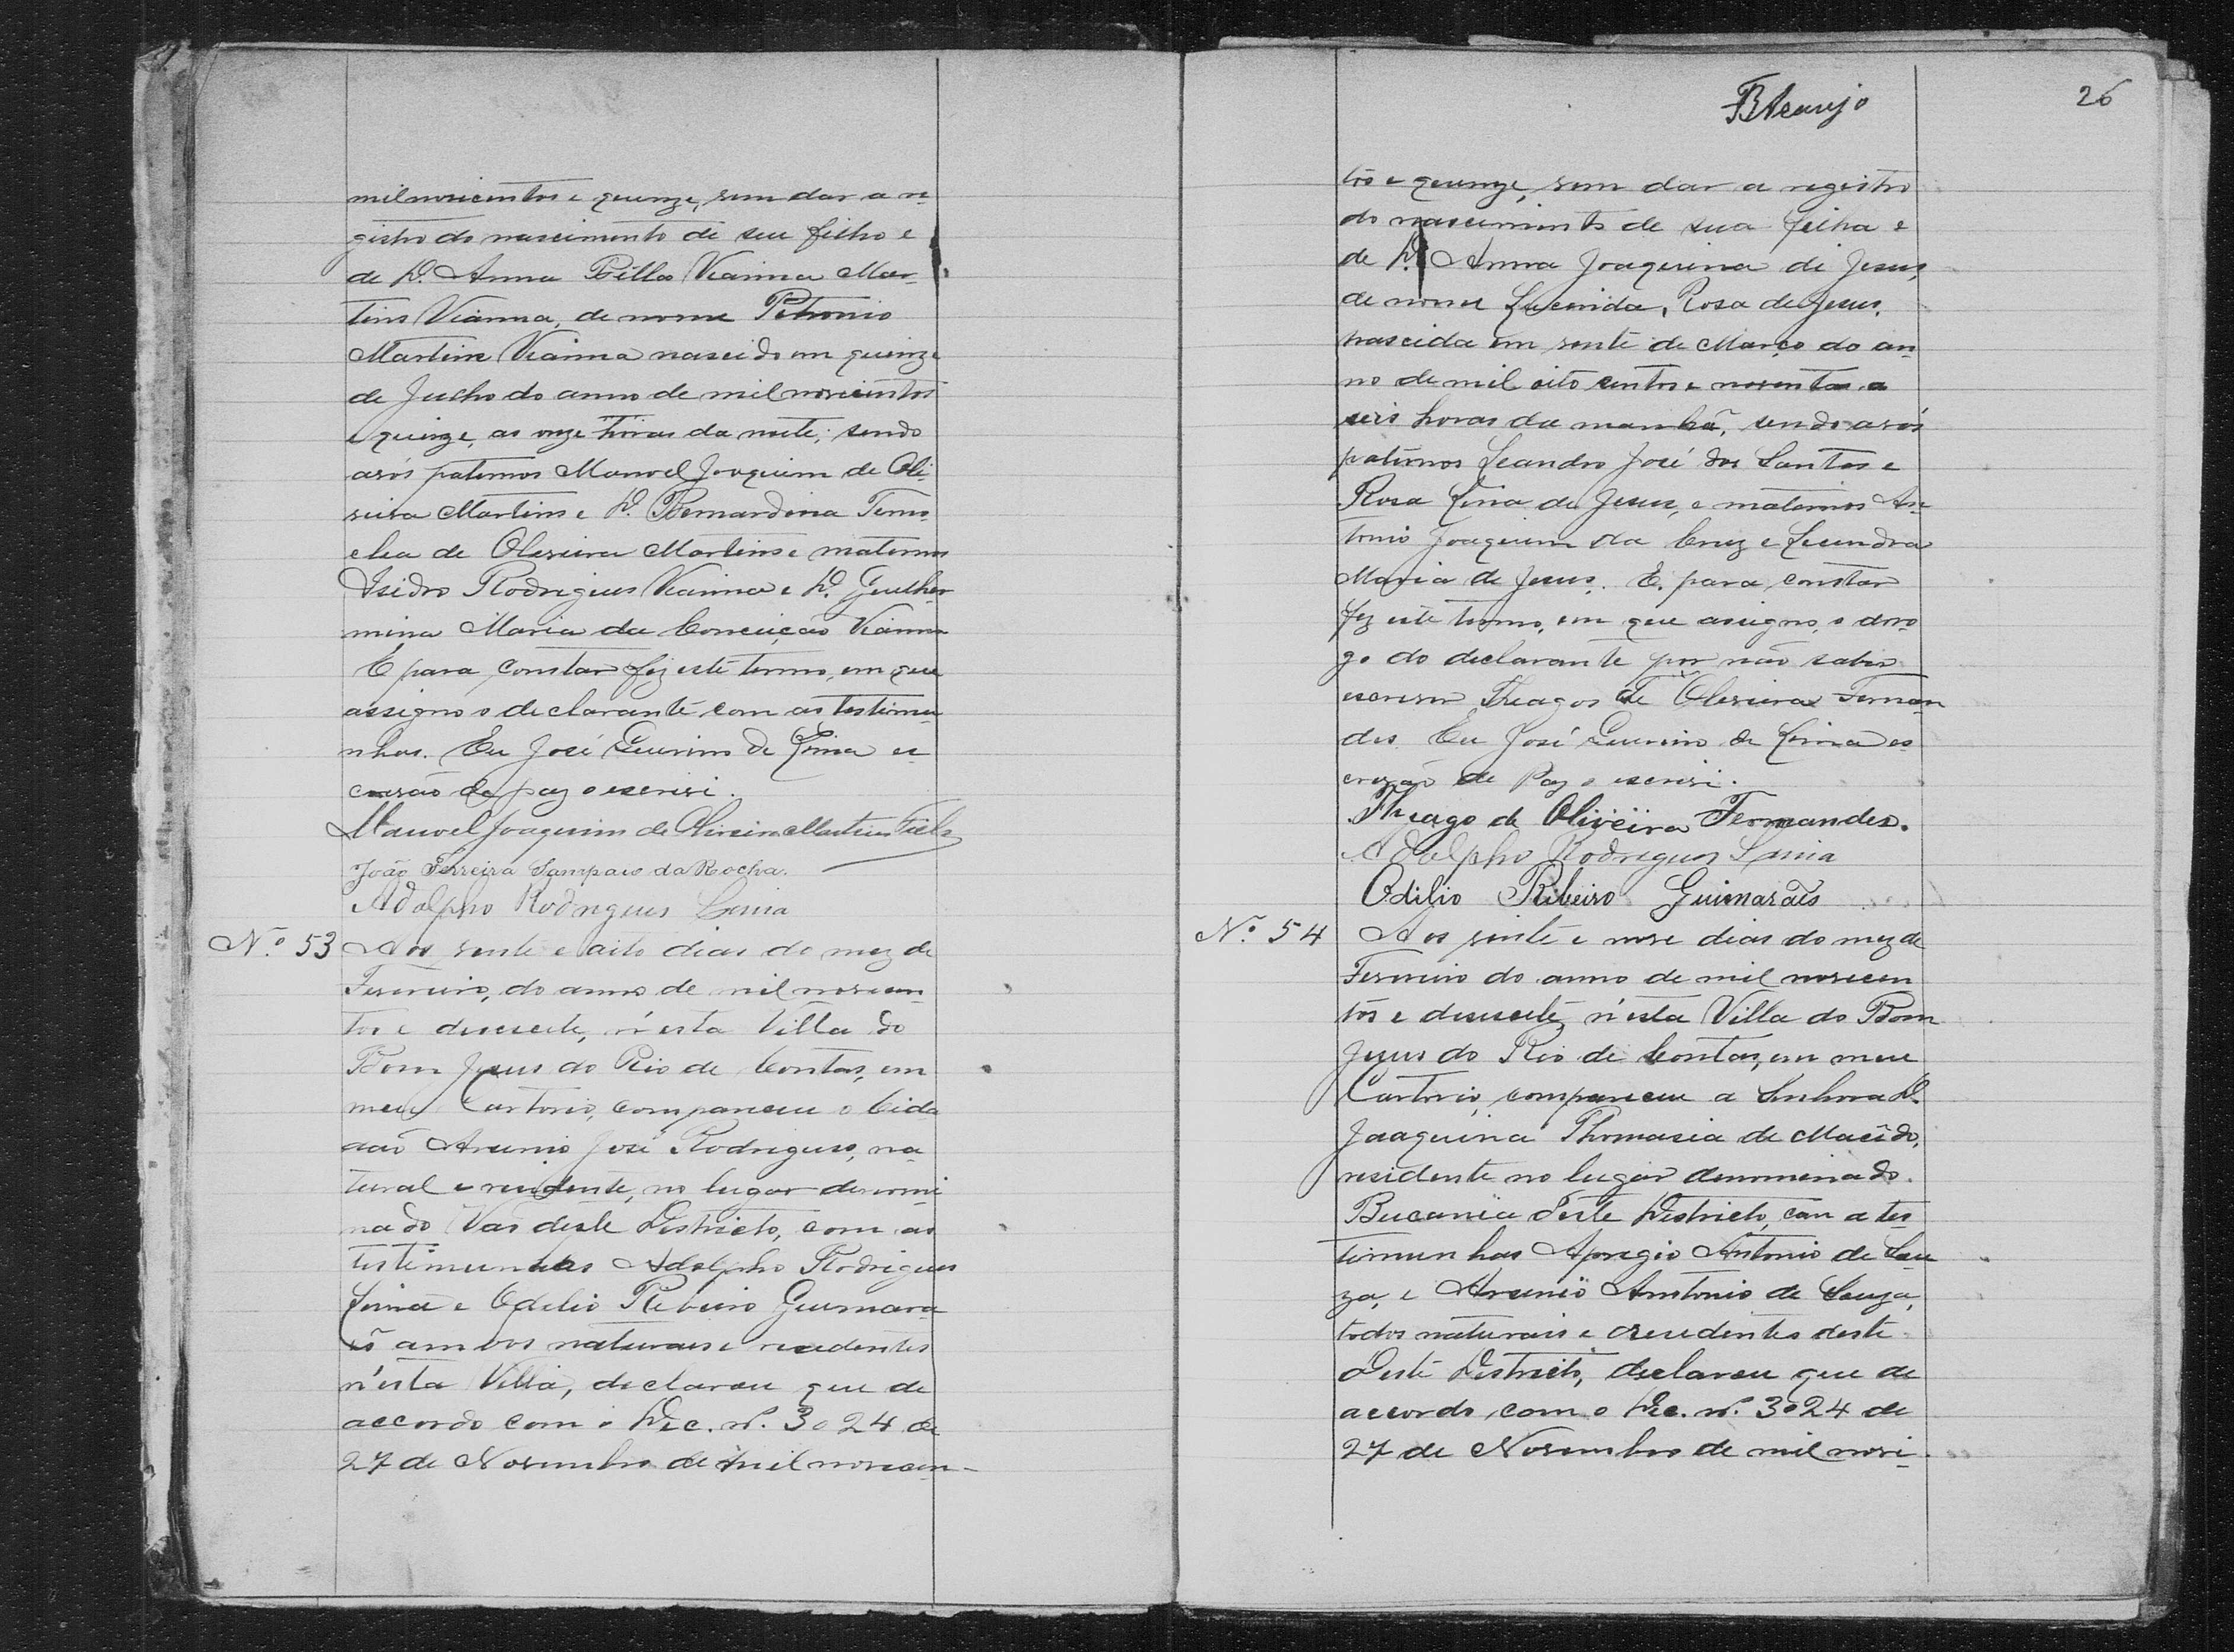 milnovicentos e quinze, sem dar a re-
gistro do nascimento de seu filho e
de D. Anna Vianna Mar-
tins Vianna, de nome Petronio
Martins Vianna nascido em quinze
de Julho do anno de mil novicentos
e quinze, as onze horas da noite; sendo
avós paternos Manoel Joaquim de Oli-
veira Martins e D. Bernardina
de Oliveira Martins e maternos
Isidro Rodrigues Vianna e D. Guilher
mina Maria da Conceição Vianna
E para constar fiz este termo, em que
assigno o declarante com as testemu-
nhas. Eu José de Lima es-
crivão de paz o escrivi.
Manoel Joaquim de Oliveira Martins Filho
João Ferreira Sampaio da Rocha.
Adolpho Rodrigues Lima
Nº 53 Aos vente e oito dias do mez de
Fevereiro, do anno de mil novecen-
tos e desesete, n'esta Villa do
Bom Jesus do Rio de Contas, em
meu Cartorio, compareceu o Cida
dão Arsenio José Rodrigues, na-
tural e residente, no lugar denomi
nado Vas deste Districto, com as
testemunhas Adolpho Rodrigues
Lima e Odilio Ribeiro Guimara-
es ambos naturais e residentes
n'esta Villa, declarou que de
accordo com o Dec. nº. 3024 de
27 de Novembro de mil novecen-
BAraujo
26
tos e quinze, sem dar a registro
do nascimento de sua filha e
de D. Anna Joaquina de Jesus,
de nome Lucinida, Rosa de Jesus,
nascida em vente de Março do an-
no de mil oito centos e noventa a
seis horas da manhã, sendo avós
paternos Leandro José dos Santos e
Rosa Lina de Jesus, e maternos An-
tonio Joaquim da Cruz e
Maria de Jesus. E. para constar
fiz este termo, em que assigno, o
go do declarante por não saber
escrever Thiagos de Oliveira Fernan
des. Eu José de Lima es
crivão de Paz o escrivi.
Thiago de Oliveira Fernandes.
Adolpho Rodrigues Lima
Odilio Ribeiro Guimarães
Nº. 54 Aos vinte e nove dias do mez de
Fevereiro do anno de mil novecen
tos e desesete, n'esta Villa do Bom
Jesus do Rio de Contas, em meu
Cartorio, compareceu a Senhora D.
Joaquina Thomasia de Macêdo,
residente no lugar denominado
deste Districto, com a tes
temunhas Aprigio Antonio de Sou
za, e Arsenio Antonio de Souza,
todos naturais e residentes deste
Deste Districto, declarou que de
accordo com o Dec. nº. 3024 de
27 de Novembro de mil nove-